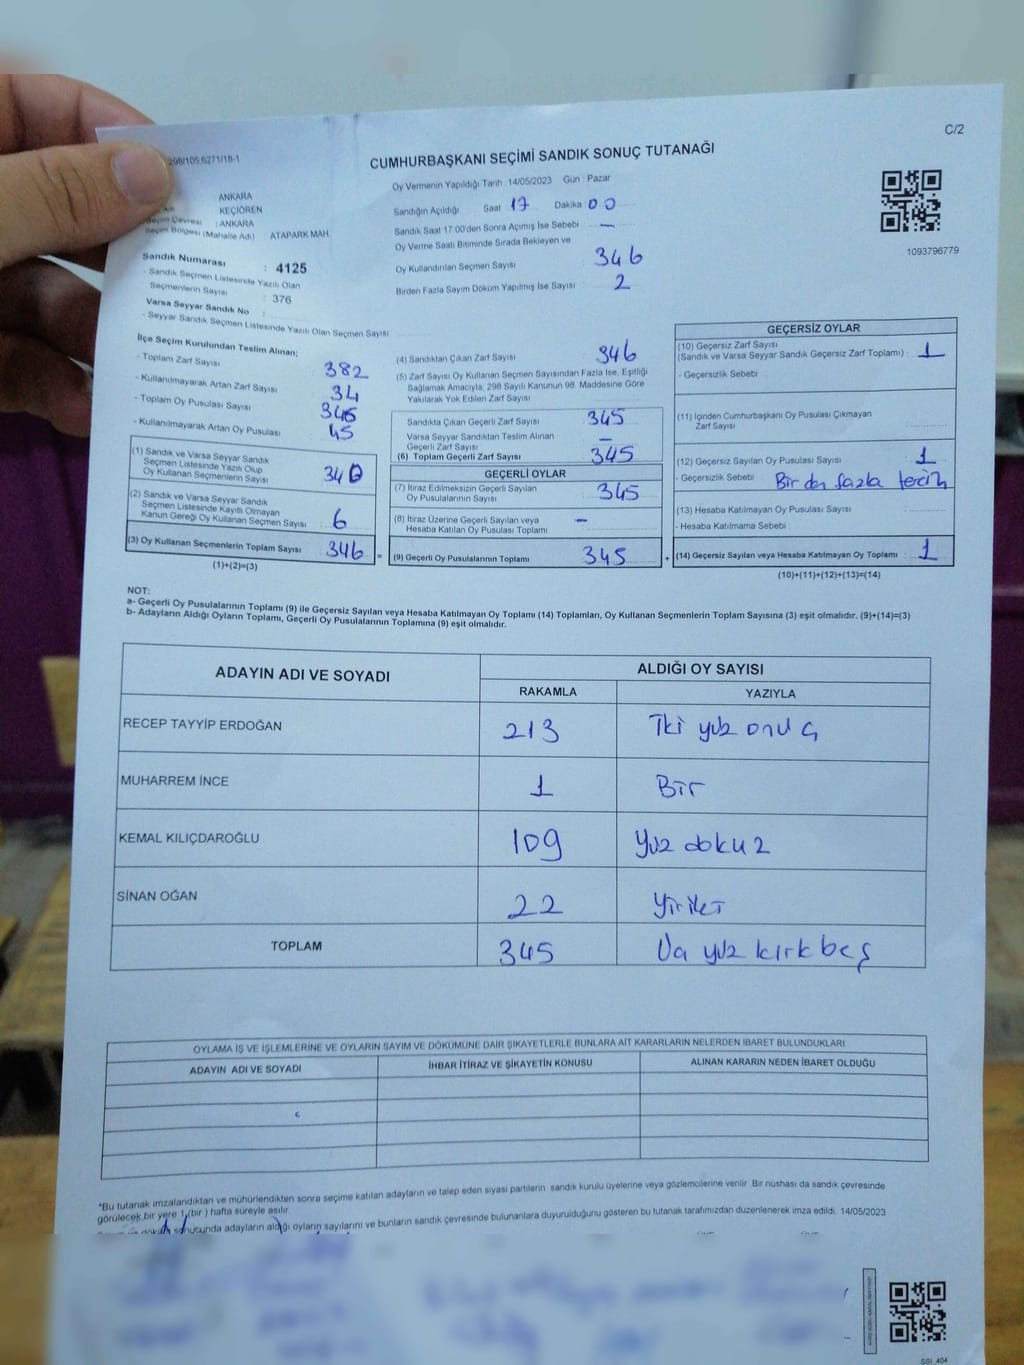 C/2
298/105,6271/18-1
CUMHURBAŞKANI SEÇİMİ SANDIK SONUÇ TUTANAĞI
ANKARA
KEÇİÖREN
Seçim Çevresi : ANKARA
Seçim Bölgesi (Mahalle Adı) : ATAPARK MAH.
Sandık Numarası : 4125
- Sandık Seçmen Listesinde Yazılı Olan
Seçmenlerin Sayısı : 376
Varsa Seyyar Sandık No :
- Seyyar Sandık Seçmen Listesinde Yazılı Olan Seçmen Sayısı
Oy Vermenin Yapıldığı Tarih : 14/05/2023 Gün : Pazar
Sandığın Açıldığı Saat 17 Dakika : 00
Sandık Saat 17.00'den Sonra Açımış İse Sebebi —
Oy Verme Saati Bitiminde Sırada Bekleyen ve
Oy Kullandırılan Seçmen Sayısı 346
Birden Fazla Sayım Döküm Yapılmış İse Sayısı 2
1093796779
İlçe Seçim Kurulundan Teslim Alınan;
- Toplam Zarf Sayısı 382
- Kullanılmayarak Artan Zarf Sayısı 34
- Toplam Oy Pusulası Sayısı
- Kullanılmayarak Artan Oy Pusulası 45
(1) Sandık ve Varsa Seyyar Sandık
Seçmen Listesinde Yazılı Olup
Oy Kullanan Seçmenlerin Sayısı 340
(2) Sandık ve Varsa Seyyar Sandık
Seçmen Listesinde Kayıtlı Olmayan
Kanun Gereği Oy Kullanan Seçmen Sayısı 6
(3) Oy Kullanan Seçmenlerin Toplam Sayısı 346 =
(1)+(2)=(3)
(4) Sandıktan Çıkan Zarf Sayısı 346
(5) Zarf Sayısı Oy Kullanan Seçmen Sayısından Fazla İse, Eşitliği
Sağlamak Amacıyla; 298 Sayılı Kanunun 98. Maddesine Göre
Yakılarak Yok Edilen Zarf Sayısı
Sandıkta Çıkan Geçerli Zarf Sayısı 345
Varsa Seyyar Sandıktan Teslim Alınan
Geçerli Zarf Sayısı —
(6) Toplam Geçerli Zarf Sayısı 345
GEÇERLİ OYLAR
(7) İtiraz Edilmeksizin Geçerli Sayılan
Oy Pusulalarının Sayısı 345
(8) İtiraz Üzerine Geçerli Sayılan veya
Hesaba Katılan Oy Pusulası Toplamı —
(9) Geçerli Oy Pusulalarının Toplamı 345 +
GEÇERSİZ OYLAR
(10) Geçersiz Zarf Sayısı
(Sandık ve Varsa Seyyar Sandık Geçersiz Zarf Toplamı) : 1
- Geçersizlik Sebebi
(11) İçinden Cumhurbaşkanı Oy Pusulası Çıkmayan
Zarf Sayısı
(12) Geçersiz Sayılan Oy Pusulası Sayısı 1
- Geçersizlik Sebebi Birden fazla tercih
(13) Hesaba Katılmayan Oy Pusulası Sayısı
- Hesaba Katılmama Sebebi
(14) Geçersiz Sayılan veya Hesaba Katılmayan Oy Toplamı : 1
(10)+(11)+(12)+(13)=(14)
NOT:
a- Geçerli Oy Pusulalarının Toplamı (9) ile Geçersiz Sayılan veya Hesaba Katılmayan Oy Toplamı (14) Toplamları, Oy Kullanan Seçmenlerin Toplam Sayısına (3) eşit olmalıdır. (9)+(14)=(3)
b- Adayların Aldığı Oyların Toplamı, Geçerli Oy Pusulalarının Toplamına (9) eşit olmalıdır.
ADAYIN ADI VE SOYADI
ALDIĞI OY SAYISI
RAKAMLA YAZIYLA
RECEP TAYYİP ERDOĞAN 213 İki yüz onüç
MUHARREM İNCE 1 Bir
KEMAL KILIÇDAROĞLU 109 Yüz dokuz
SİNAN OĞAN 22
TOPLAM 345 yüz kırkbeş
OYLAMA İŞ VE İŞLEMLERİNE VE OYLARIN SAYIM VE DÖKÜMÜNE DAİR ŞİKAYETLERLE BUNLARA AİT KARARLARIN NELERDEN İBARET BULUNDUKLARI
ADAYIN ADI VE SOYADI İHBAR İTİRAZ VE ŞİKAYETİN KONUSU ALINAN KARARIN NEDEN İBARET OLDUĞU
*Bu tutanak imzalandıktan ve mühürlendikten sonra seçime katılan adayların ve talep eden siyasi partilerin sandık kurulu üyelerine veya gözlemcilerine verilir. Bir nüshası da sandık çevresinde
görülecek bir yere 1 (bir ) hafta süreyle asılır.
sonucunda adayların aldığı oyların sayılarını ve bunların sandık çevresinde bulunanlara duyurulduğunu gösteren bu tutanak tarafımızdan düzenlenerek imza edildi. 14/05/2023
SSI_404